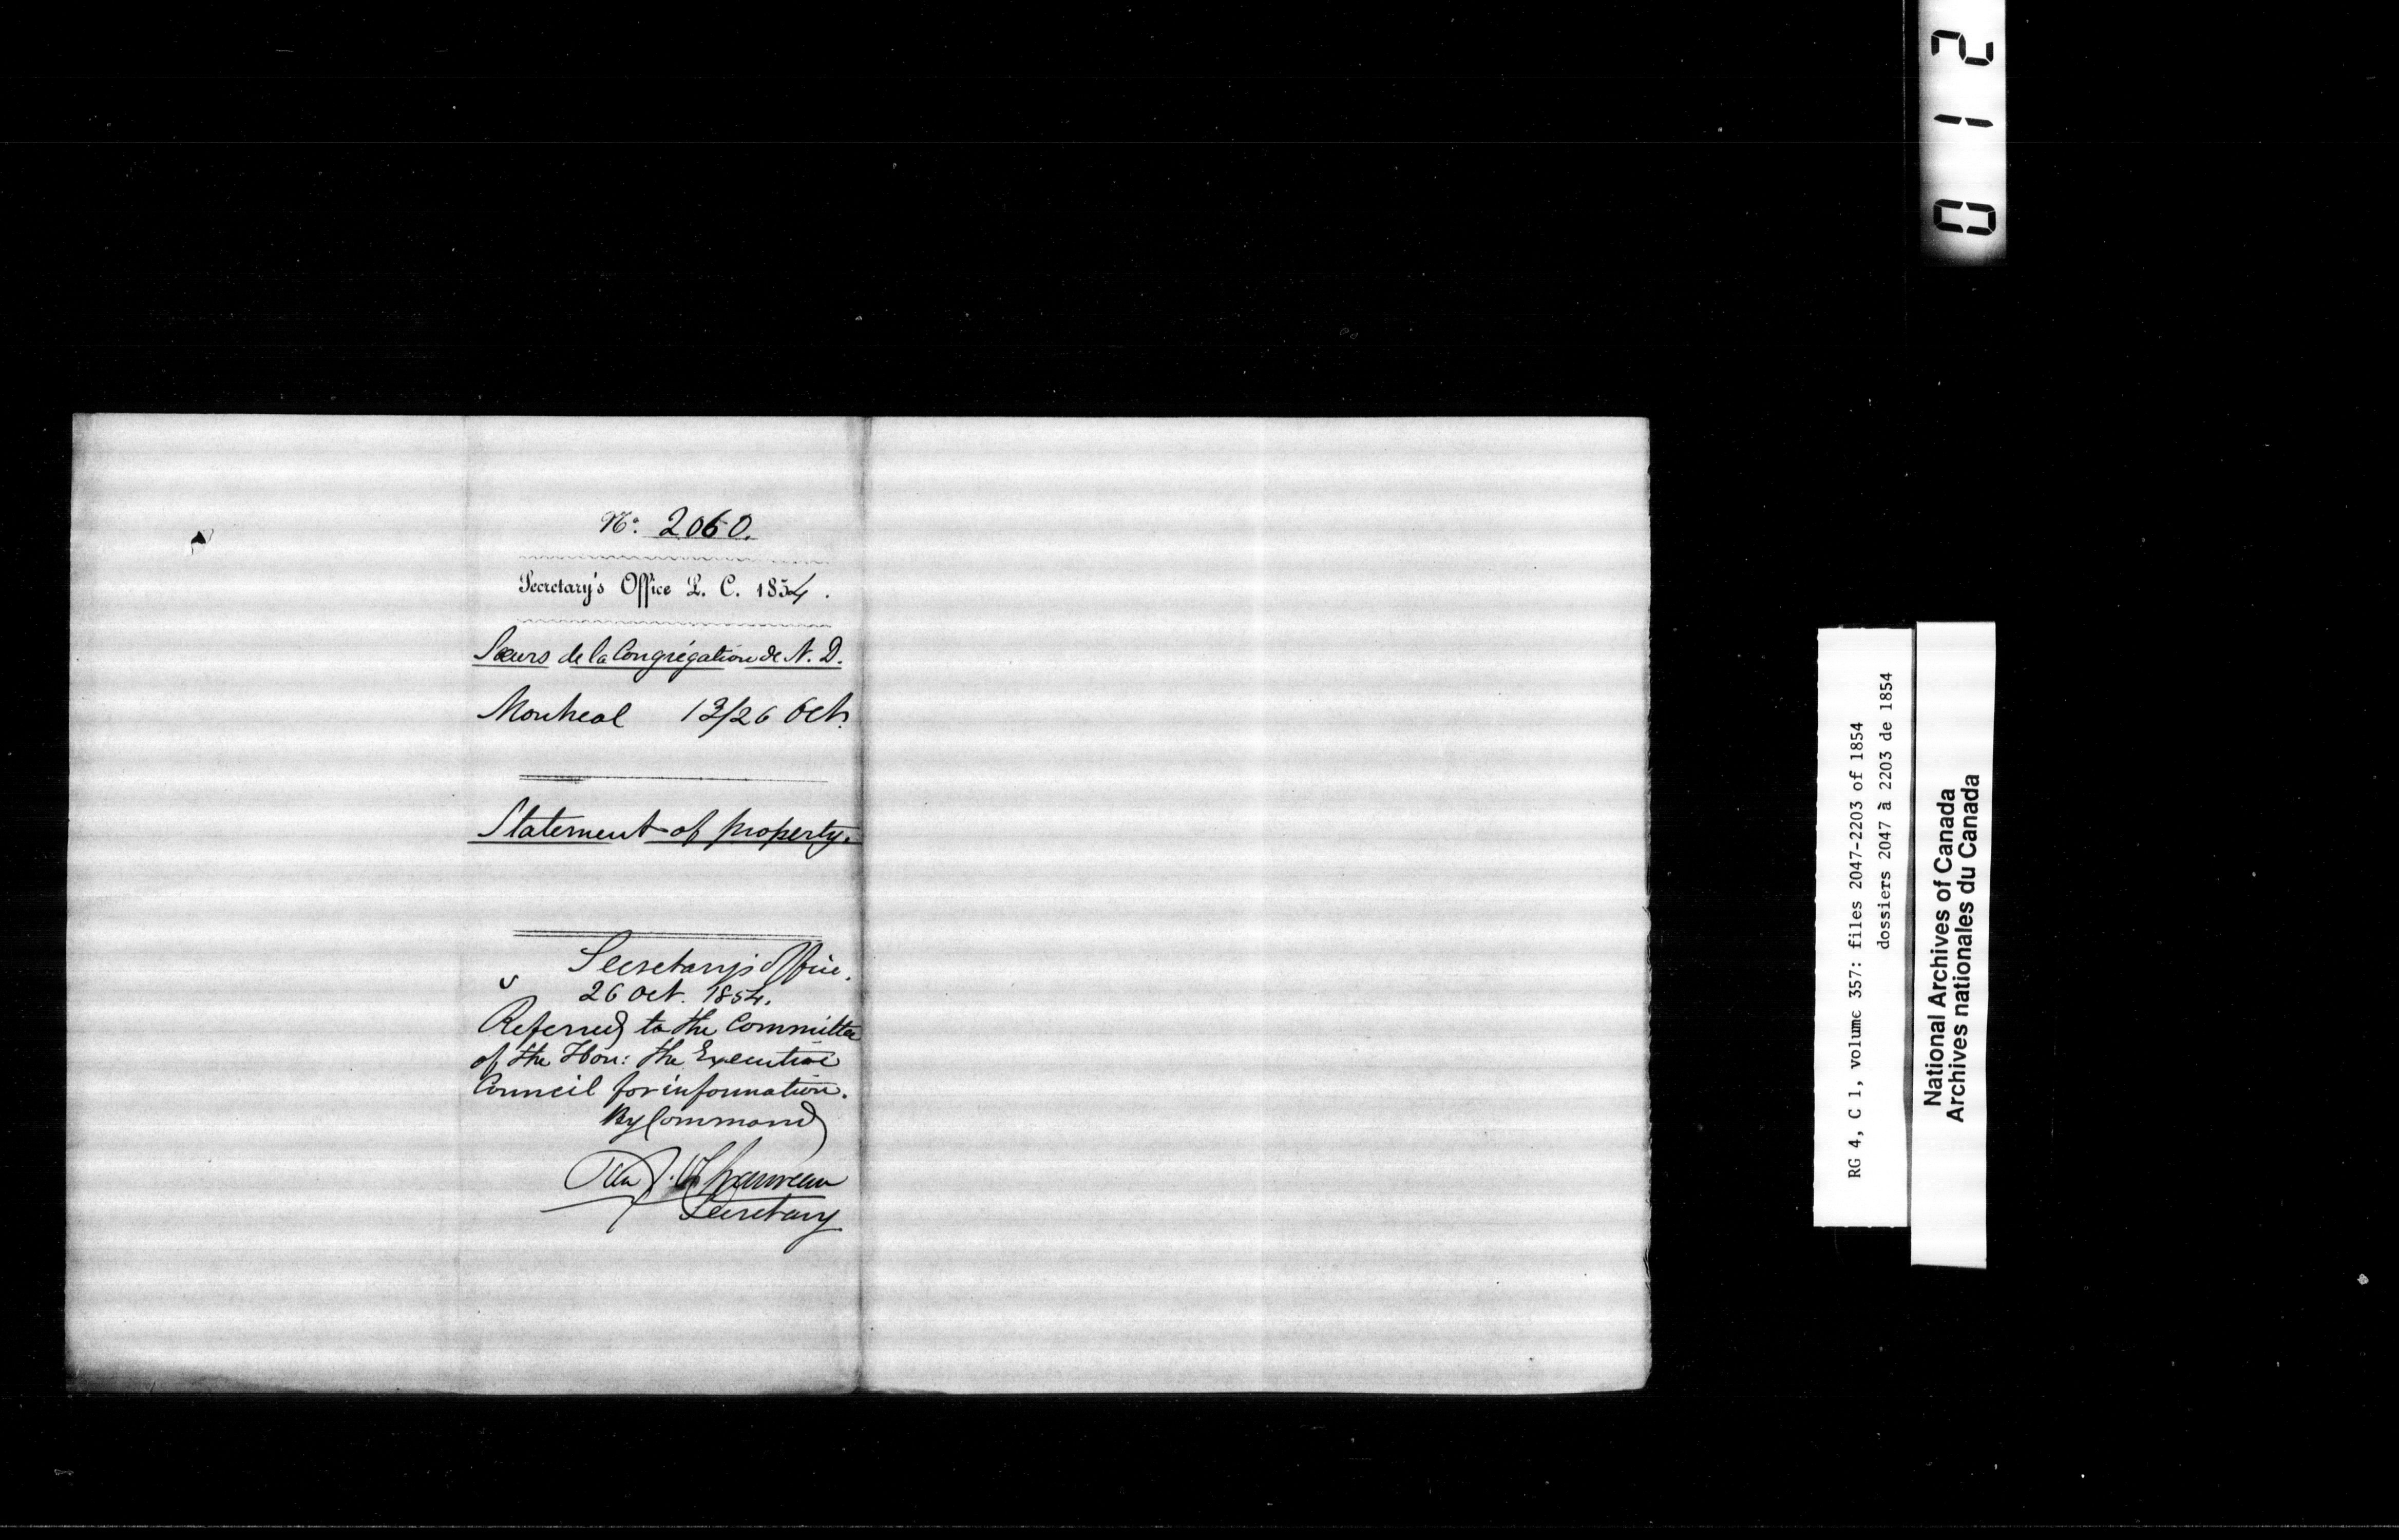 No. 2060.
Secretary's Office L. C. 1854.
Sœurs de la Congrégation de N. D.
Montreal 13/26 Oct.
Statement of property.
Secretary's Office.
26 Oct. 1854.
Referred to the Committee
of the Hon: the Executive
Council for information.
By Command
Chauveau
Secretary
012
RG 4, C 1, volume 357: files 2047-2203 of 1854
dossiers 2047 à 2203 de 1854
National Archives of Canada
Archives nationales du Canada